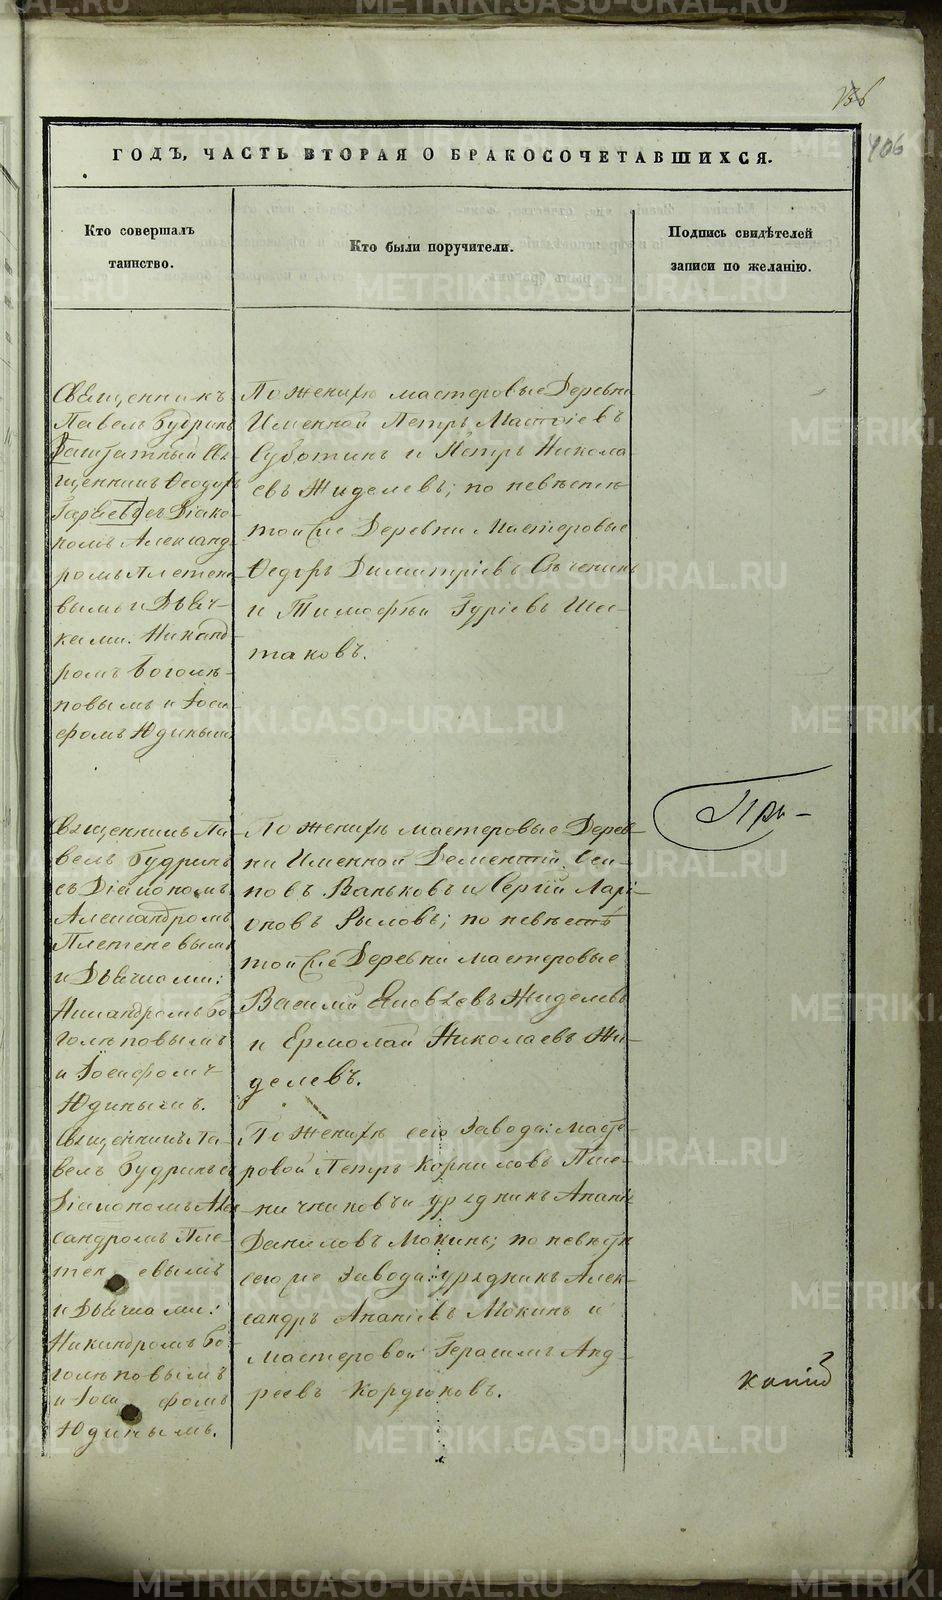 136
106
ГОДЪ, ЧАСТЬ ВТОРАЯ О БРАКОСОЧЕТАВШИХСЯ.
Кто совершалъ
таинство.
Кто были поручители.
Подпись свидѣтелей
записи по желанію.
Священникъ
Павелъ Будринъ
Заштатный Свя
щенникъ Ѳеодоръ
съ Діако
номъ Александ
ромъ Плетене
вымъ и Дьяч-
ками: Никанд
ромъ Боголю-
повымъ и Іоси
фомъ Юдинымъ
По женихѣ мастеровые Деревни
Именной Петръ Матѳіевъ
Суботинъ и Петръ Никола
евъ Жиделевъ; по невѣстѣ
той же Деревни Мастеровые
Ѳедоръ Димитріевъ
и Тимофѣй Гуріевъ Шес-
таковъ.
Священникъ Па-
велъ Будринъ
съ Діакономъ
Александромъ
Плетеневымъ
и Дьячками:
Никандромъ Бо
голюповымъ
и Іосифомъ
Юдинымъ.
По женихѣ мастеровые Дерев-
ни Именной Дементій Оси-
повъ Ваньковъ и Сергій Ларі-
оновъ Рыловъ; по невѣстѣ
той же Деревни мастеровые
Василій Яковлевъ Жиделевъ
и Ермолай Николаевъ Жи-
делевъ.
Пры-
Священникъ Па-
велъ Будринъ съ
Діакономъ Алек
сандромъ Пле-
тен евымъ
и Дьячками:
Никандромъ Бо
голюповымъ
и Іоси фомъ
Юдинымъ.
По женихѣ сего Завода: Масте-
ровой Петръ Корниловъ Пше-
ничниковъ и урядникъ Ананій
Даниловъ Мокинъ; по невѣстѣ
сего же Завода: урядникъ Алек-
сандръ Ананіевъ Мокинъ и
Мастеровой Герасимъ Анд-
реевъ Кордюковъ.
METRIKI.GASO-URAL.RU